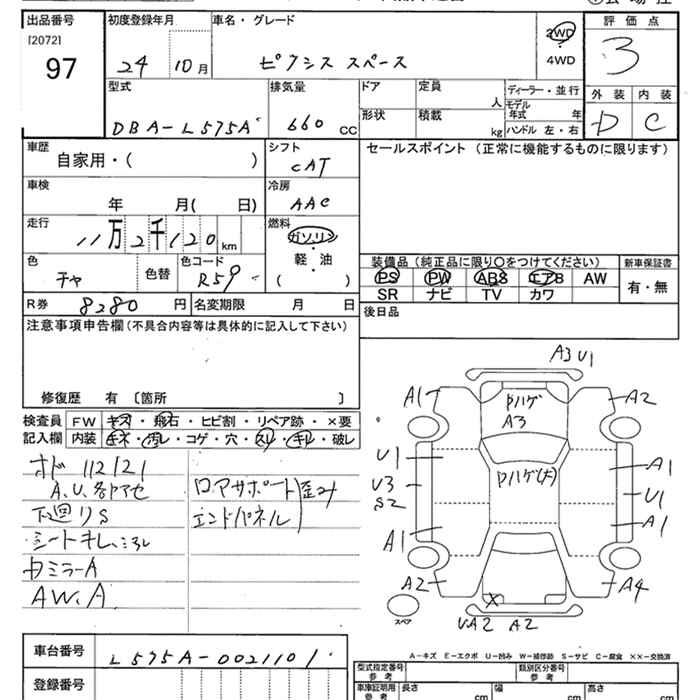 出品番号 初度登録年月 車名・グレード 評価点
[2072]
97
24 10月 ピクシス スペース 2WD・4WD 3
型式 排気量 ドア 定員 人 ディーラー・並行 外装 内装
DBA-L575A 660 CC 形状 積載 kg モデル年式 年 ハンドル 左・右 D C
車歴 シフト セールスポイント (正常に機能するものに限ります)
自家用・( ) CAT
車検 冷房
年 月( 日) AAC
走行 燃料
11万2千120km ガソリン
軽・油
( )
色 色替 色コード 装備品 (純正品に限り○をつけてください) 新車保証書
チャ R59 PS PW ABS エアB AW 有・無
SR ナビ TV カワ
R券 8280円 名変期限 月 日 後日品
注意事項申告欄(不具合内容等は具体的に記入して下さい)
修復歴 有 〔箇所 〕
検査員 FW キズ・飛石・ヒビ割・リペア跡・×要
記入欄 内装 キズ・汚レ・コゲ・穴・スリ・キレ・破レ
ホド 112121
A.U.各ヤマセ ロアサポート歪み
下廻りS エンドパネル
シートキレ、ミゾレ
カミラーA
AW.A
A3 U1
A1 PハゲA3 A2
U1 Pハゲ(大) A1
U3 U1
S2
A1 A1
A2 X A4
スペア
UA2 A2
A－キズ E－エクボ U－凹み W－補修跡 S－サビ C－腐食 ××－交換済
車台番号 L575A-0021101
登録番号
型式指定番号 参考 類別区分番号 参考
車庫証明用 参考 長さ cm 幅 cm 高さ cm